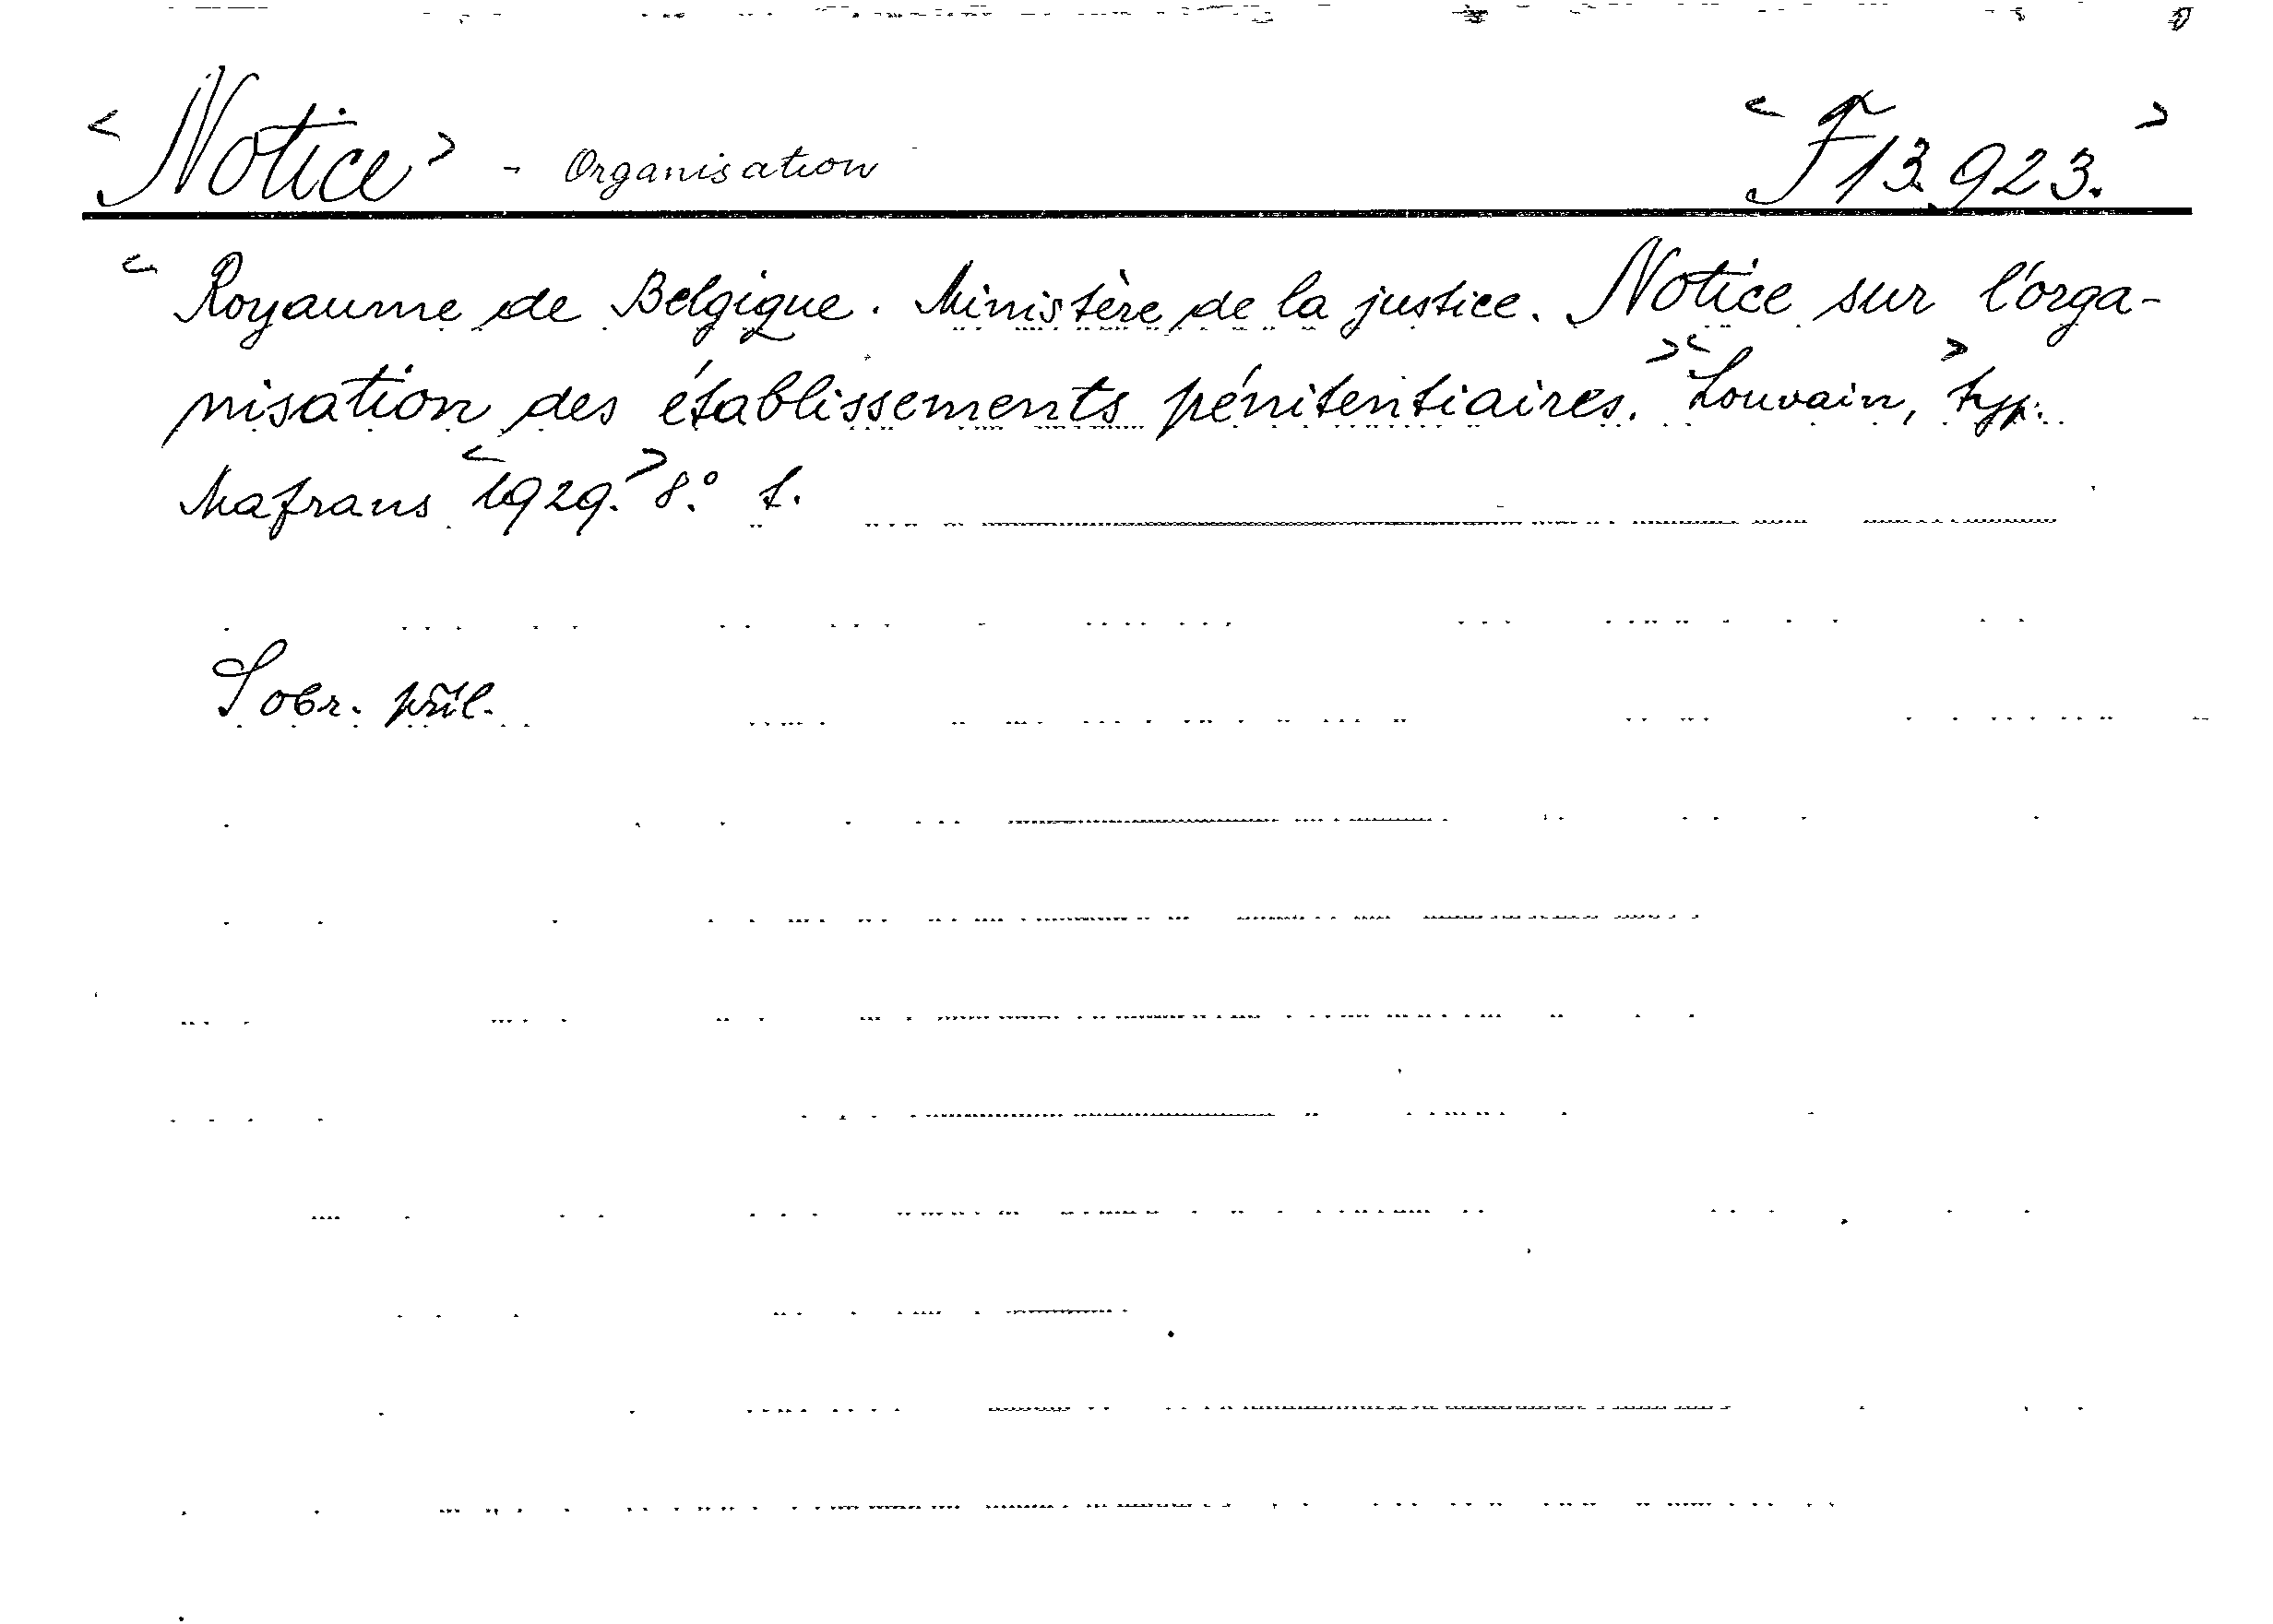 <Notice> - Organisation <F 13.923.>
<Royaume de Belgique. Ministère de la justice. Notice sur l'orga-
nisation des établissements pénitentiaires.> <Louvain,> typ.
Mafrans <1929.> 8.° 1.
S obr. příl.